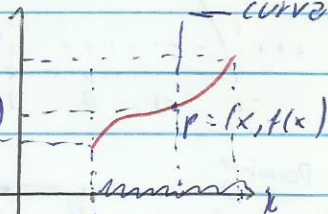 ← curva
)
P = (x, f(x)
x